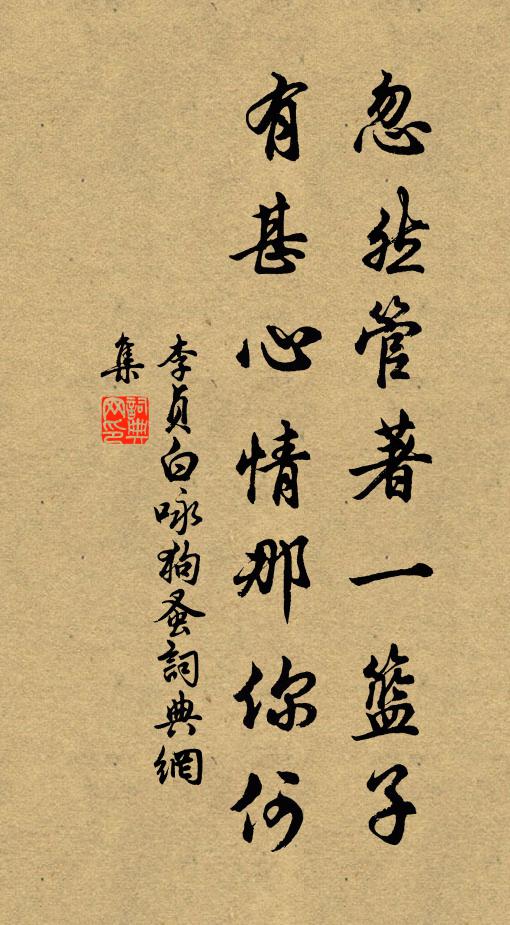 忽然管著一籃子
有甚心情那你何
李貞白咏狗蚤詞典網
集
詞典网印